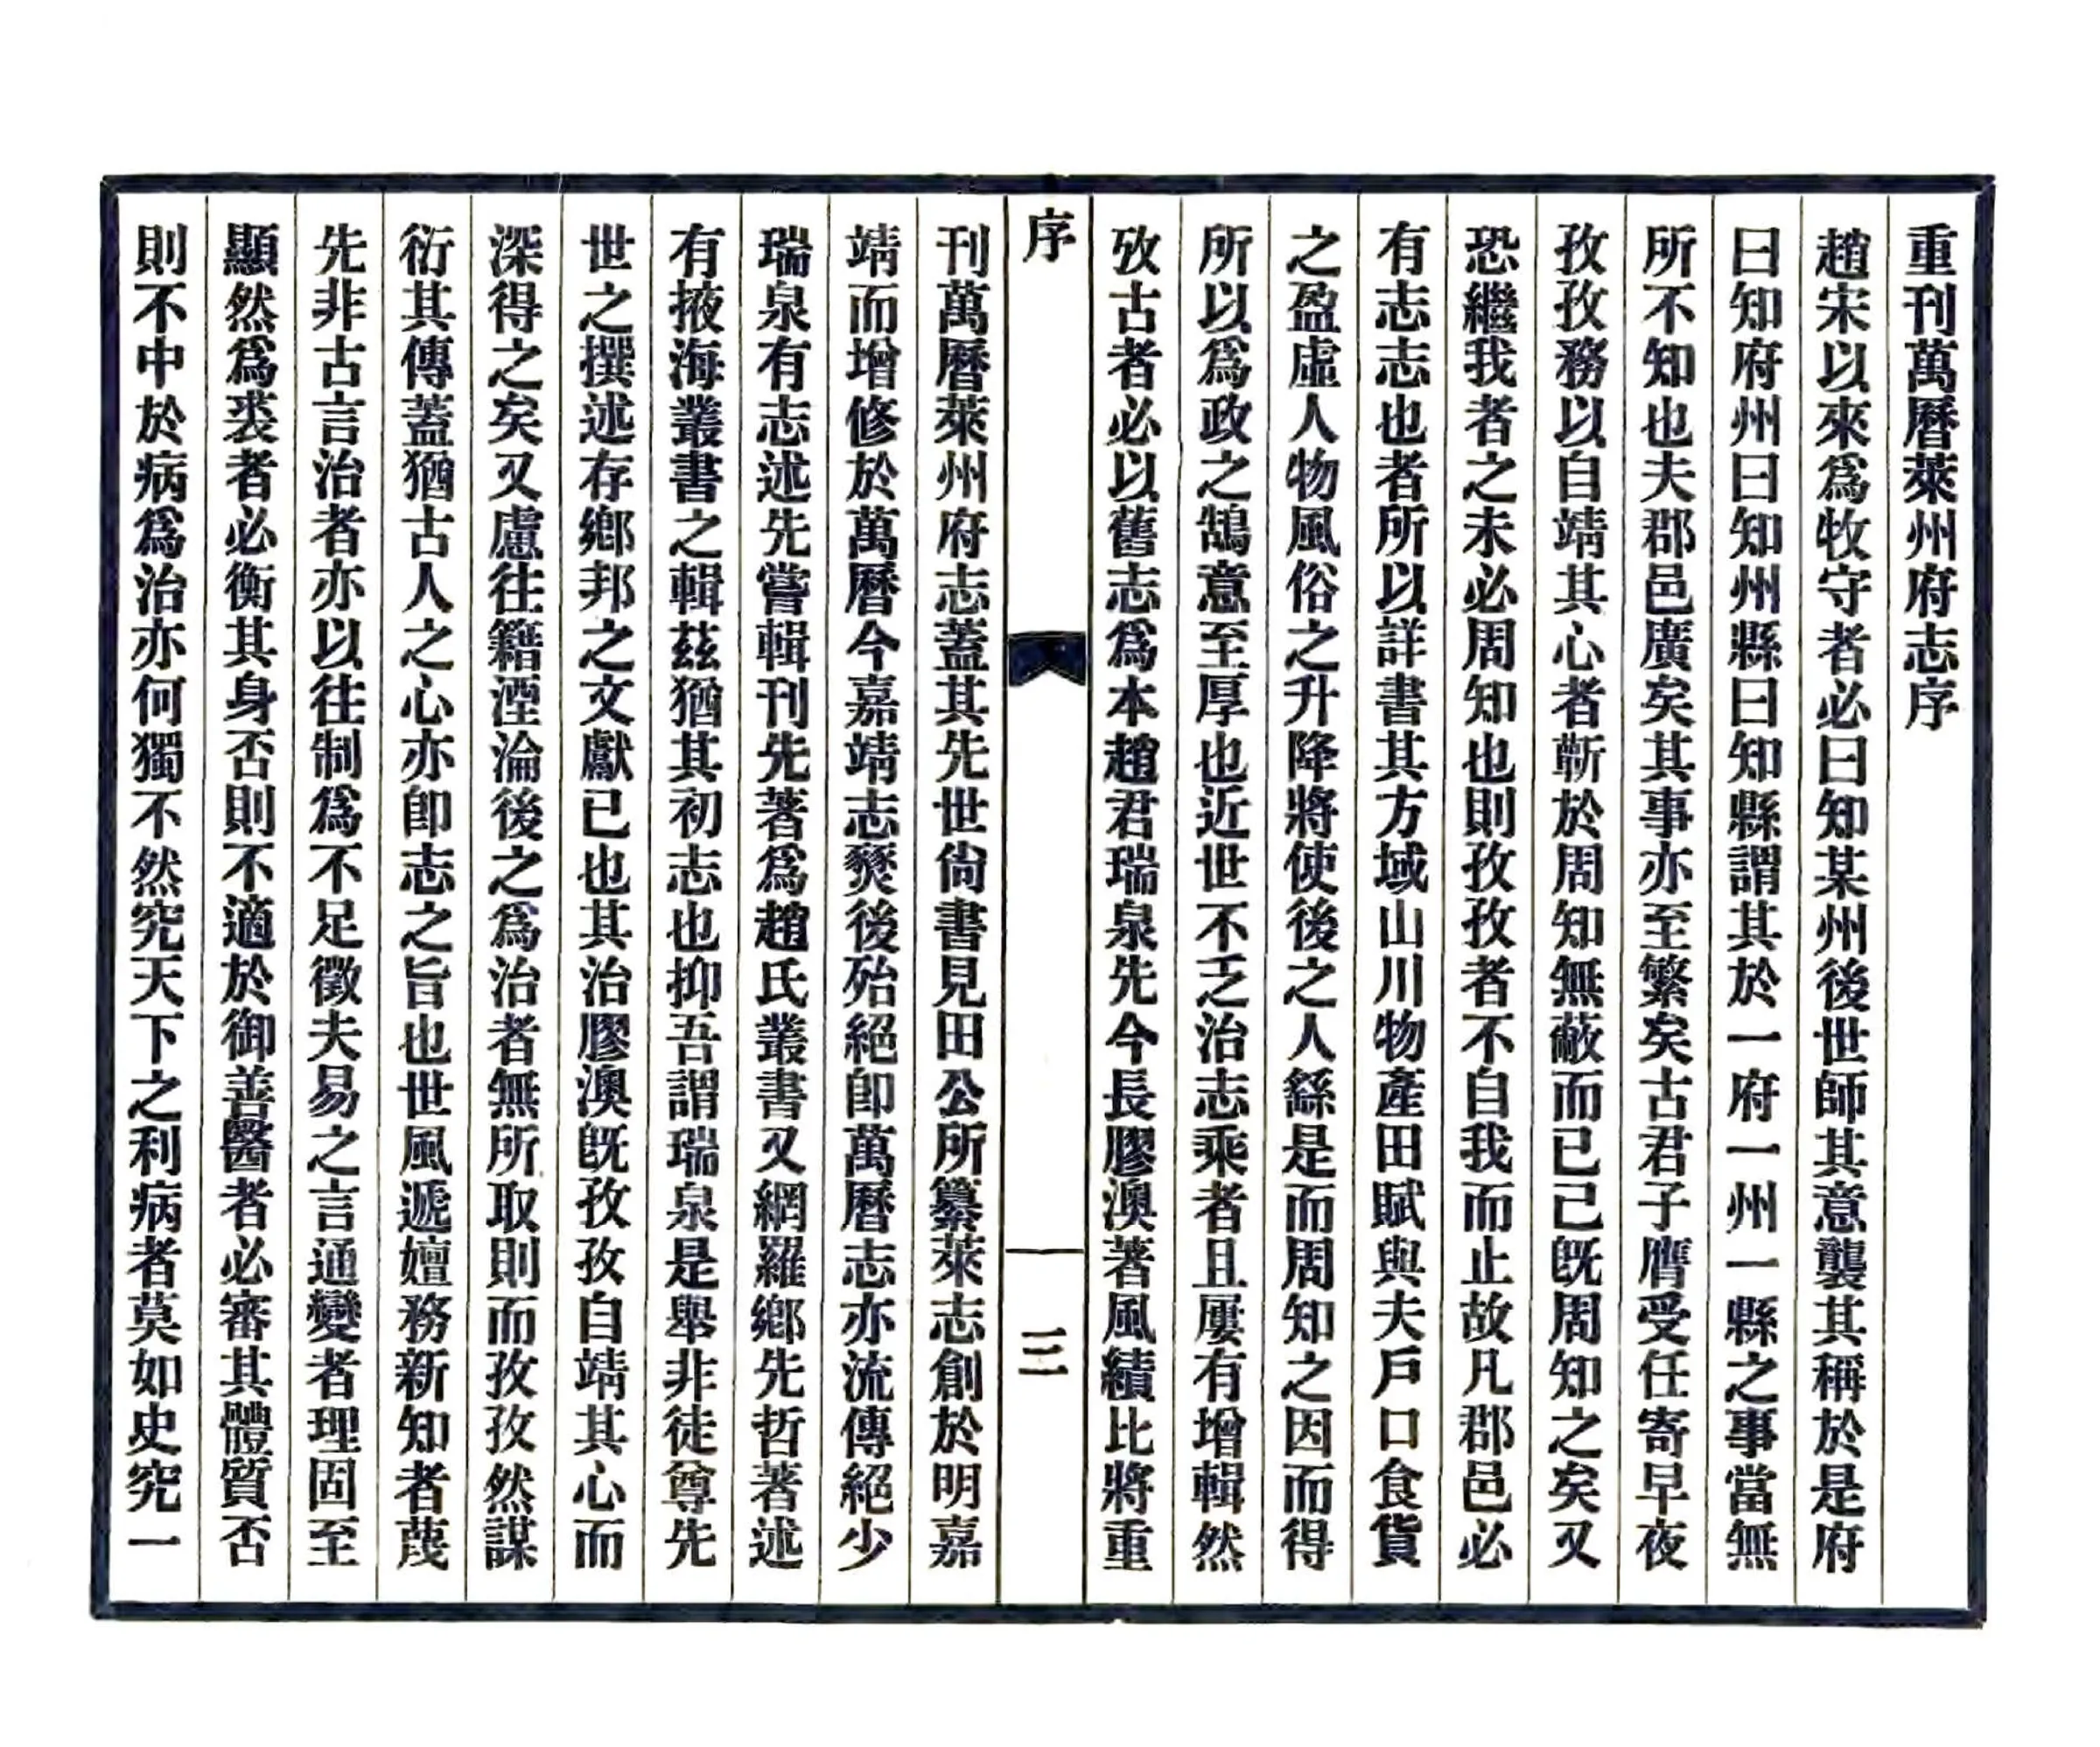 重刊萬曆萊州府志序
趙宋以來爲牧守者必曰知某州後世師其意襲其稱於是府
曰知府州曰知州縣曰知縣謂其於一府一州一縣之事當無
所不知也夫郡邑廣矣其事亦至繁矣古君子膺受任寄早夜
孜孜務以自靖其心者蘄於周知無蔽而已已既周知之矣又
恐繼我者之未必周知也則孜孜者不自我而止故凡郡邑必
有志志也者所以詳書其方域山川物產田賦與夫戶口食貨
之盈虛人物風俗之升降將使後之人繇是而周知之因而得
所以爲政之鵠意至厚也近世不乏治志乘者且屢有增輯然
攷古者必以舊志爲本趙君瑞泉先今長膠澳著風績比將重
序
三
刊萬曆萊州府志蓋其先世尙書見田公所纂萊志創於明嘉
靖而增修於萬曆今嘉靖志燹後殆絕卽萬曆志亦流傳絕少
瑞泉有志述先嘗輯刊先著爲趙氏叢書又網羅鄉先哲著述
有掖海叢書之輯茲猶其初志也抑吾謂瑞泉是舉非徒尊先
世之撰述存鄉邦之文獻已也其治膠澳既孜孜自靖其心而
深得之矣又慮往籍湮淪後之爲治者無所取則而孜孜然謀
衍其傳蓋猶古人之心亦卽志之旨也世風遞嬗務新知者蔑
先非古言治者亦以往制爲不足徵夫易之言通變者理固至
顯然爲裘者必衡其身否則不適於御善醫者必審其體質否
則不中於病爲治亦何獨不然究天下之利病者莫如史究一